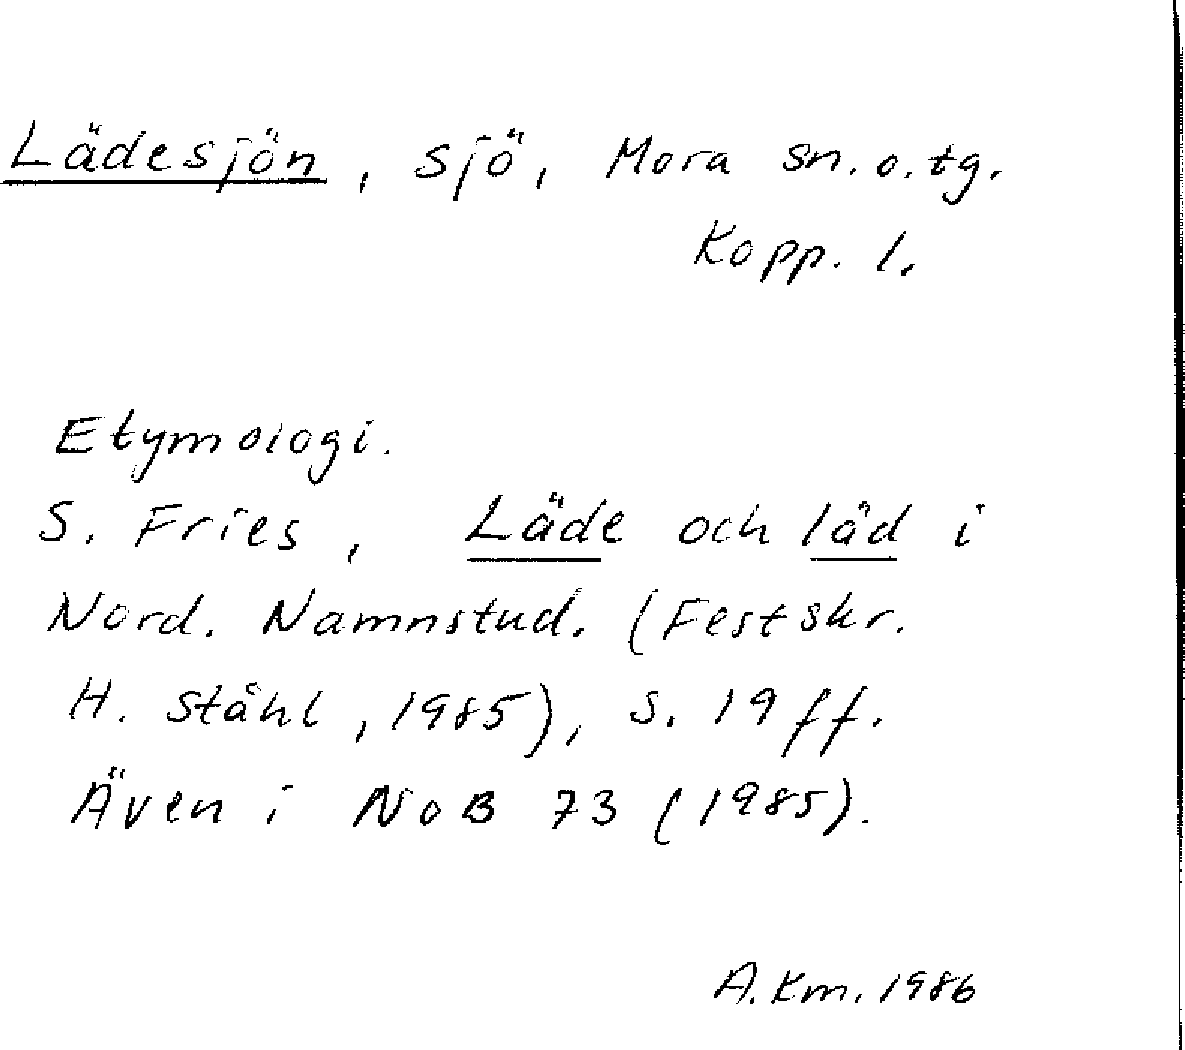 Lädesjön, sjö, Mora sn. o. tg.
Kopp. l.
Etymologi.
S. Fries, Läde och läd i
Nord. Namnstud. (Festskr.
H. Ståhl, 1985), s. 19 ff.
Även i NoB 73 (1985).
A. Km. 1986